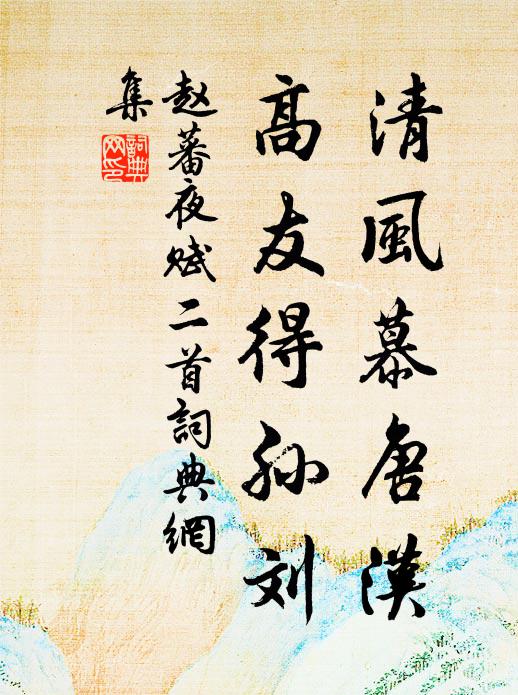 清風慕唐漢
高友得孙刘
赵蕃夜赋二首詞典網
集
詞典網印